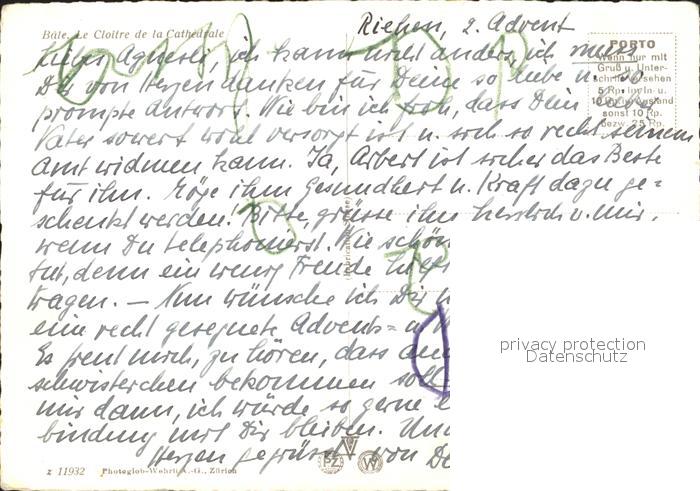 Riehen, 2. Advent
Bâle. Le Cloître de la Cathédrale
PORTO
Wenn nur mit
Gruß u. Unter-
schrift versehen
5 Rp. In/In- u.
10 Rp. im/Ausland
sonst 10 Rp.
bezw. 25 Rp.
Liebes Agnesli, ich kann nicht anders, ich muss
Dir von Herzen danken für Deine so liebe u. so
prompte Antwort. Wie bin ich froh, dass Dein lieber
Vater soweit wohl versorgt ist u. sich so recht seinem
Amt widmen kann. Ja, Arbeit ist sicher das Beste
für ihn. Möge ihm Gesundheit u. Kraft dazu ge=
schenkt werden! Bitte, grüsse ihn herzlich v. mir,
wenn Du telephonierst. Wie schön
tut, denn ein wenig Freude hilft
tragen. — Nun wünsche ich Dir
eine recht gesegnete Advents= u.
Es freut mich, zu hören, dass
schwisterchen bekommen soll
mir dann, ich würde so gerne
bindung mit Dir bleiben. Und
Herzen gegrüsst von
privacy protection
Datenschutz
z 11932 Photoglob-Wehrli A.-G., Zürich
PZ W